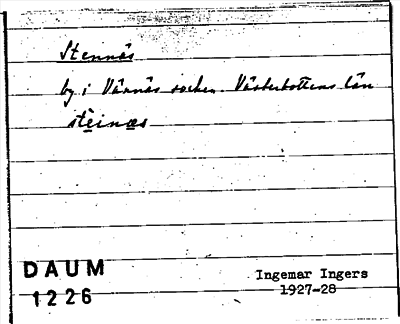 Stennäs
by i Vännäs socken. Västerbottens län
steinæs
DAUM
1226
Ingemar Ingers
1927-28